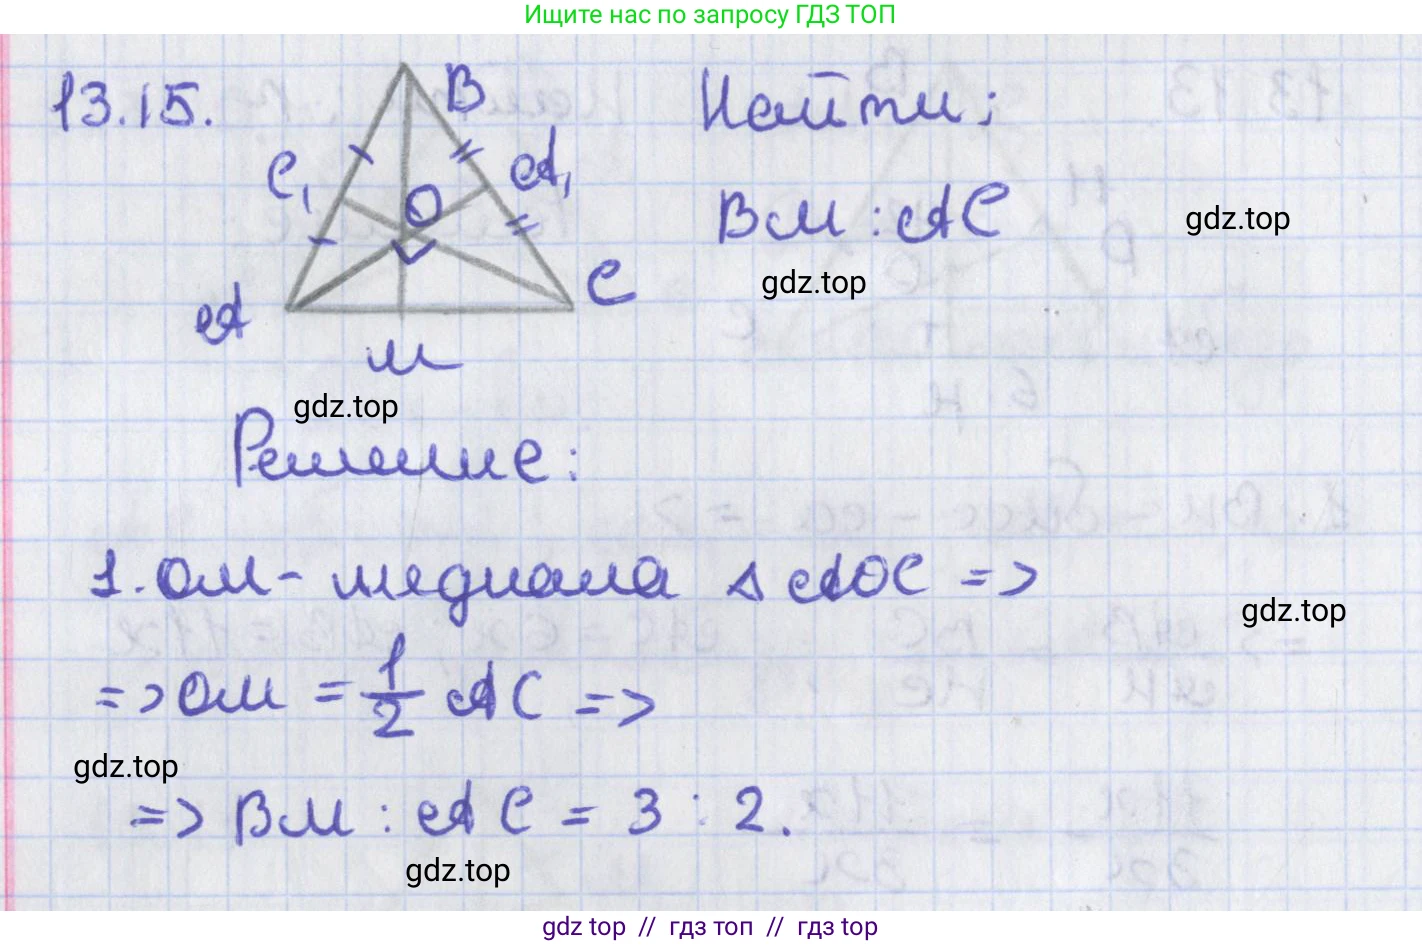 Ищите нас по запросу ГДЗ ТОП
13.15.
B
C₁
A₁
O
A
C
M
Найти:
BM : AC
gdz.top
gdz.top
gdz.top
Решение:
1. OM - медиана △ AOC =>
gdz.top
=> OM = 1/2 AC =>
gdz.top
=> BM : AC = 3 : 2.
gdz.top
gdz top // гдз топ // gdz top